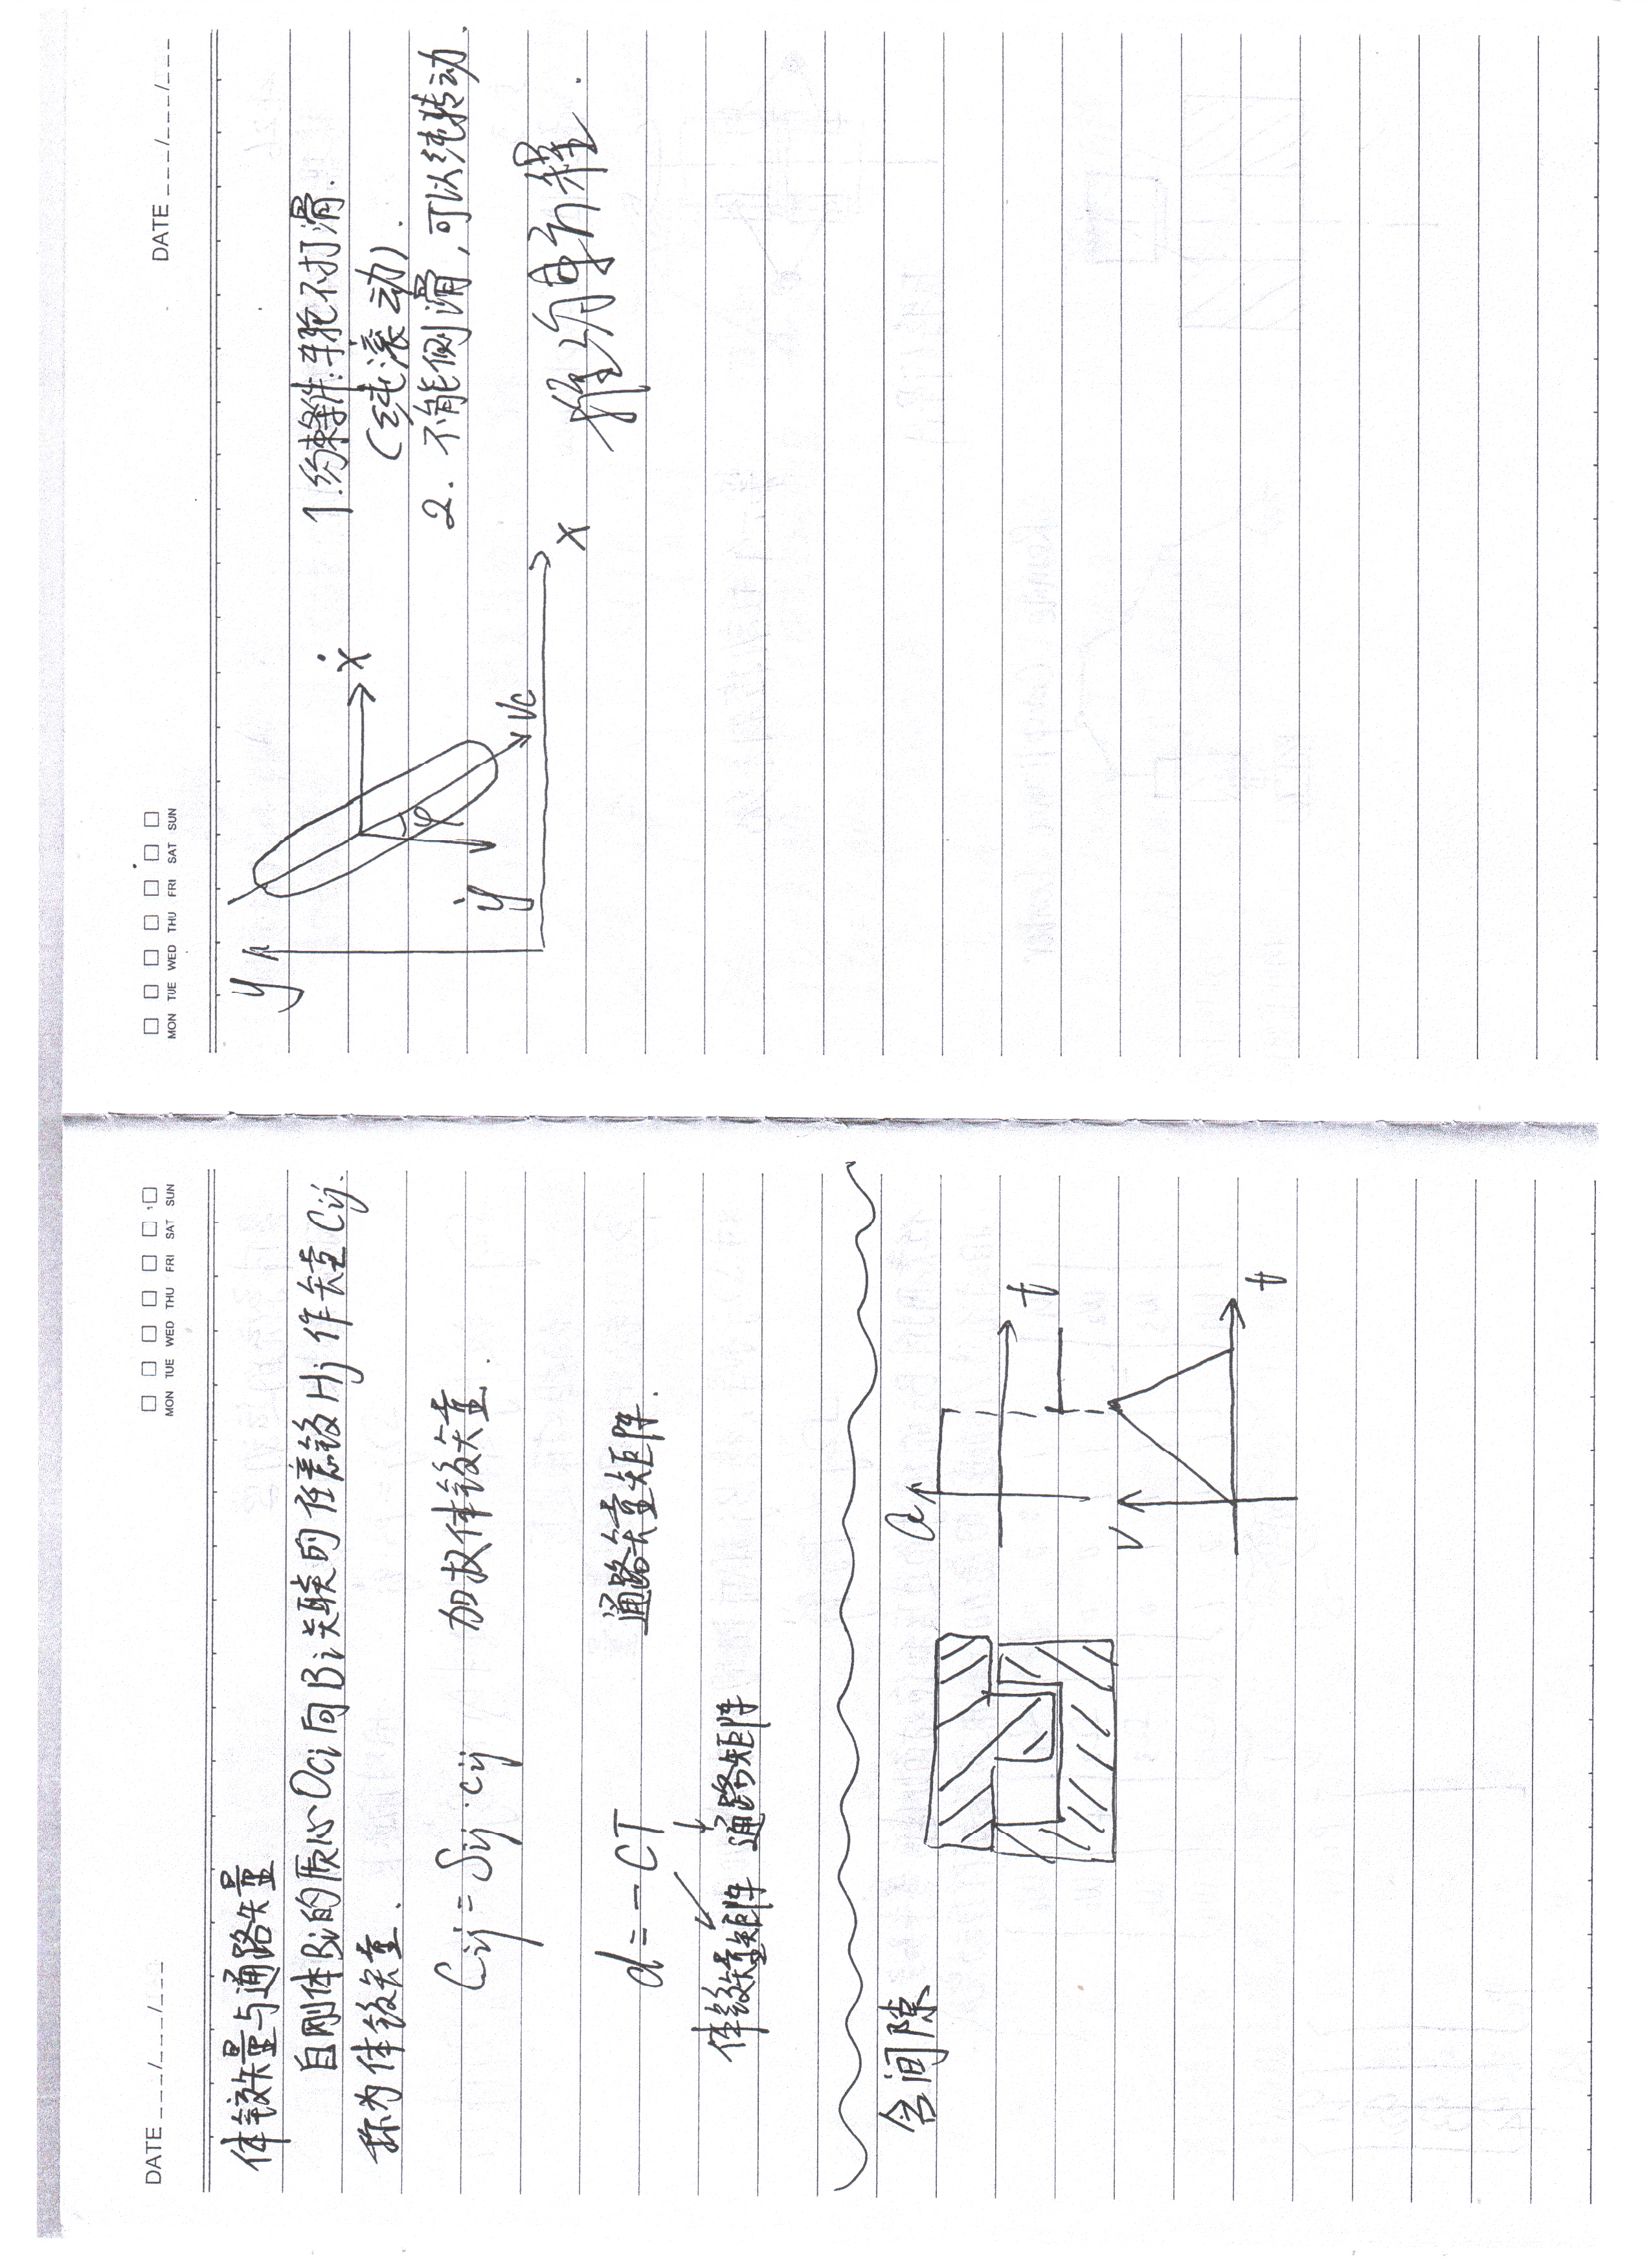 DATE ___/___/___
MON TUE WED THU FRI SAT SUN
体铰矢量与通路矢量
自刚体Bi的质心Oci向Bi关联的任意铰Hj作矢量Cij.
称为体铰矢量.
Cij = Sij·cij 加权体铰矢量.
d = -CT 通路矢量矩阵.
体铰矢量矩阵 通路矩阵
含间隙
a
t
v
t
MON TUE WED THU FRI SAT SUN
DATE ___/___/___
y
ẋ
φ
ẏ
Vc
x
1.约束条件:车轮不打滑.
(纯滚动).
2. 不能侧滑,可以纯转动.
推约束方程.